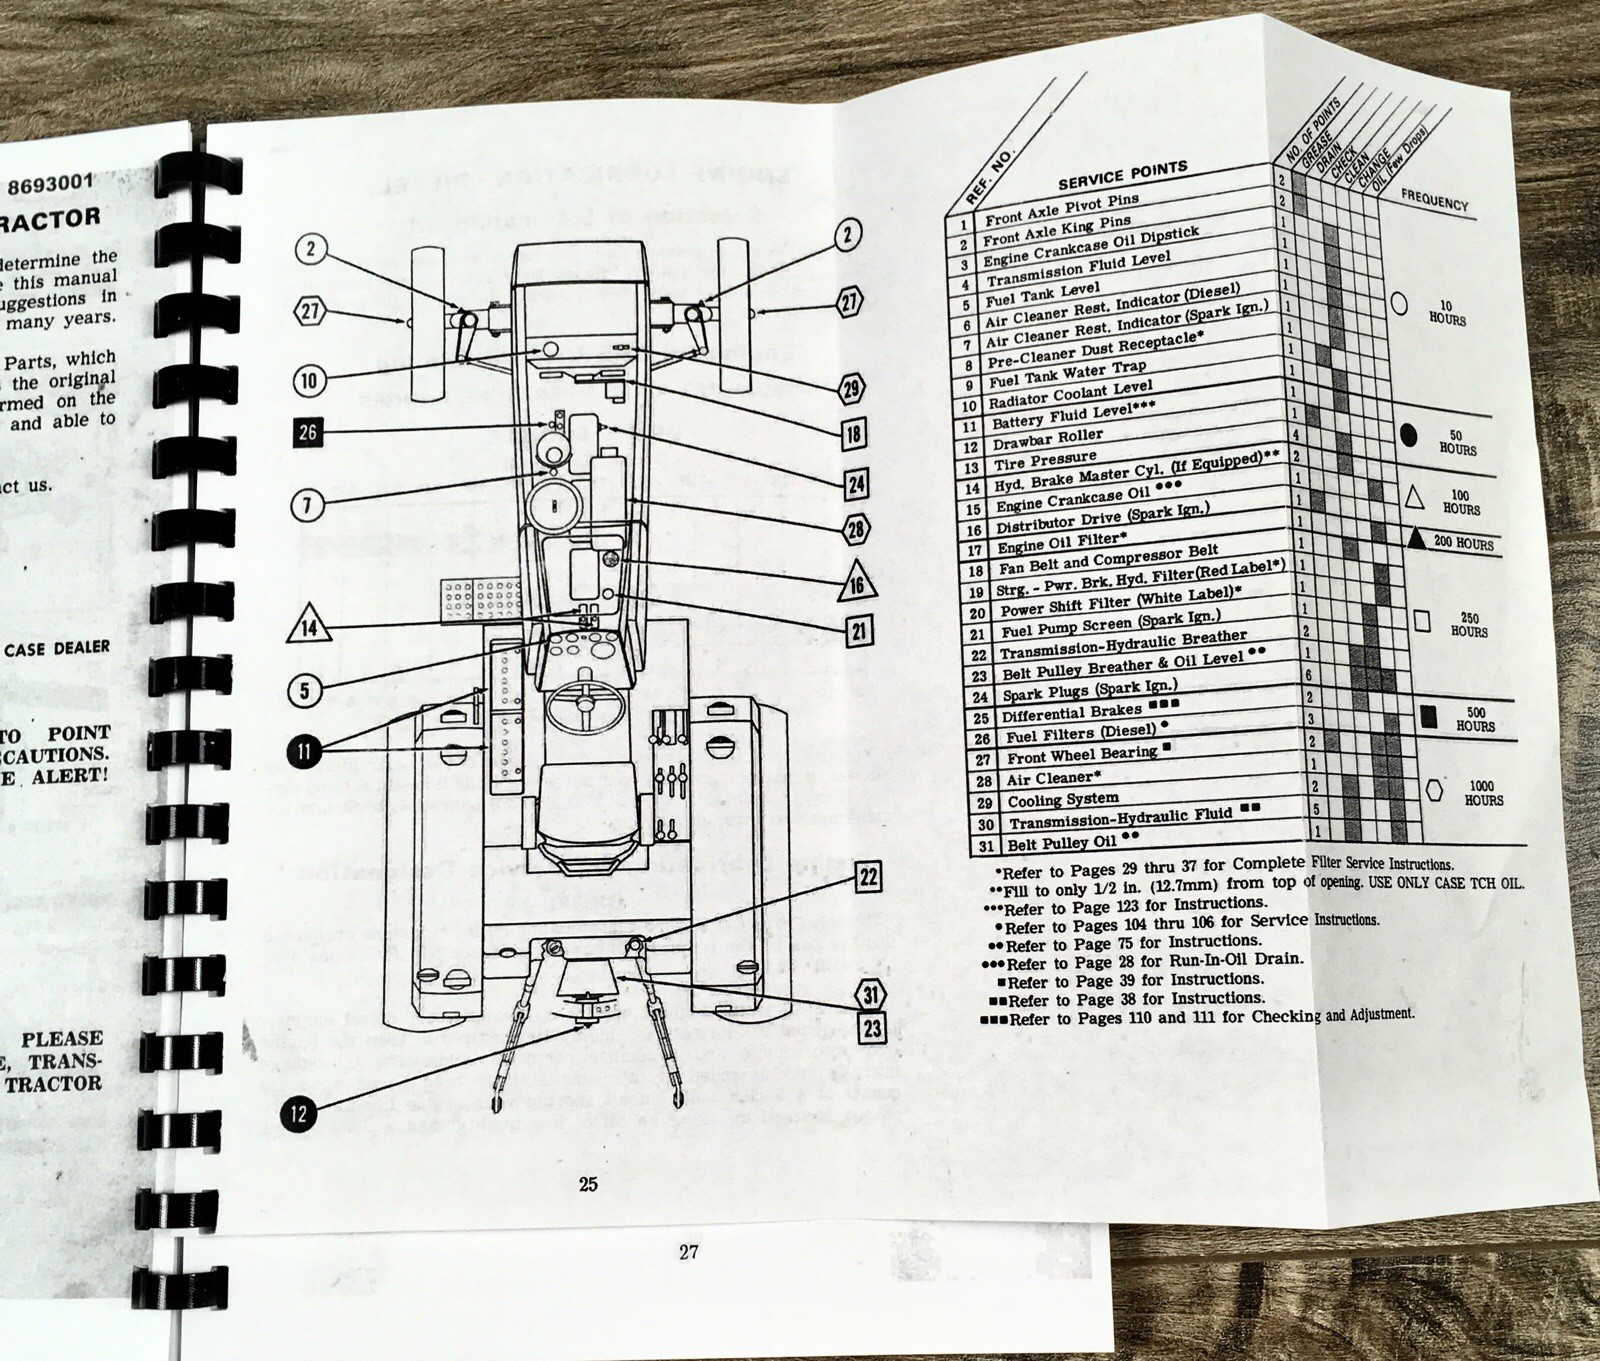 8693001
RACTOR
determine the
this manual
uggestions in
many years.
Parts, which
the original
rmed on the
and able to
ct us.
CASE DEALER
TO POINT
CAUTIONS.
E ALERT!
PLEASE
E, TRANS-
TRACTOR
2
2
27
27
10
29
26
18
24
7
28
16
14
21
5
11
22
31
23
12
25
27
REF. NO.
SERVICE POINTS
NO. OF POINTS
GREASE
DRAIN
CHECK
CLEAN
CHANGE
OIL (Few Drops)
FREQUENCY
1 Front Axle Pivot Pins
2 Front Axle King Pins
3 Engine Crankcase Oil Dipstick
4 Transmission Fluid Level
5 Fuel Tank Level
6 Air Cleaner Rest. Indicator (Diesel)
7 Air Cleaner Rest. Indicator (Spark Ign.)
8 Pre-Cleaner Dust Receptacle*
9 Fuel Tank Water Trap
10 Radiator Coolant Level
11 Battery Fluid Level***
12 Drawbar Roller
13 Tire Pressure
14 Hyd. Brake Master Cyl. (If Equipped)**
15 Engine Crankcase Oil •••
16 Distributor Drive (Spark Ign.)
17 Engine Oil Filter*
18 Fan Belt and Compressor Belt
19 Strg. - Pwr. Brk. Hyd. Filter (Red Label*)
20 Power Shift Filter (White Label)*
21 Fuel Pump Screen (Spark Ign.)
22 Transmission-Hydraulic Breather
23 Belt Pulley Breather & Oil Level ••
24 Spark Plugs (Spark Ign.)
25 Differential Brakes ■■■
26 Fuel Filters (Diesel) •
27 Front Wheel Bearing ■
28 Air Cleaner*
29 Cooling System
30 Transmission-Hydraulic Fluid ■■
31 Belt Pulley Oil ••
10
HOURS
50
HOURS
100
HOURS
200 HOURS
250
HOURS
500
HOURS
1000
HOURS
*Refer to Pages 29 thru 37 for Complete Filter Service Instructions.
**Fill to only 1/2 in. (12.7mm) from top of opening. USE ONLY CASE TCH OIL.
***Refer to Page 123 for Instructions.
•Refer to Pages 104 thru 106 for Service Instructions.
••Refer to Page 75 for Instructions.
•••Refer to Page 28 for Run-In-Oil Drain.
■Refer to Page 39 for Instructions.
■■Refer to Page 38 for Instructions.
■■■Refer to Pages 110 and 111 for Checking and Adjustment.